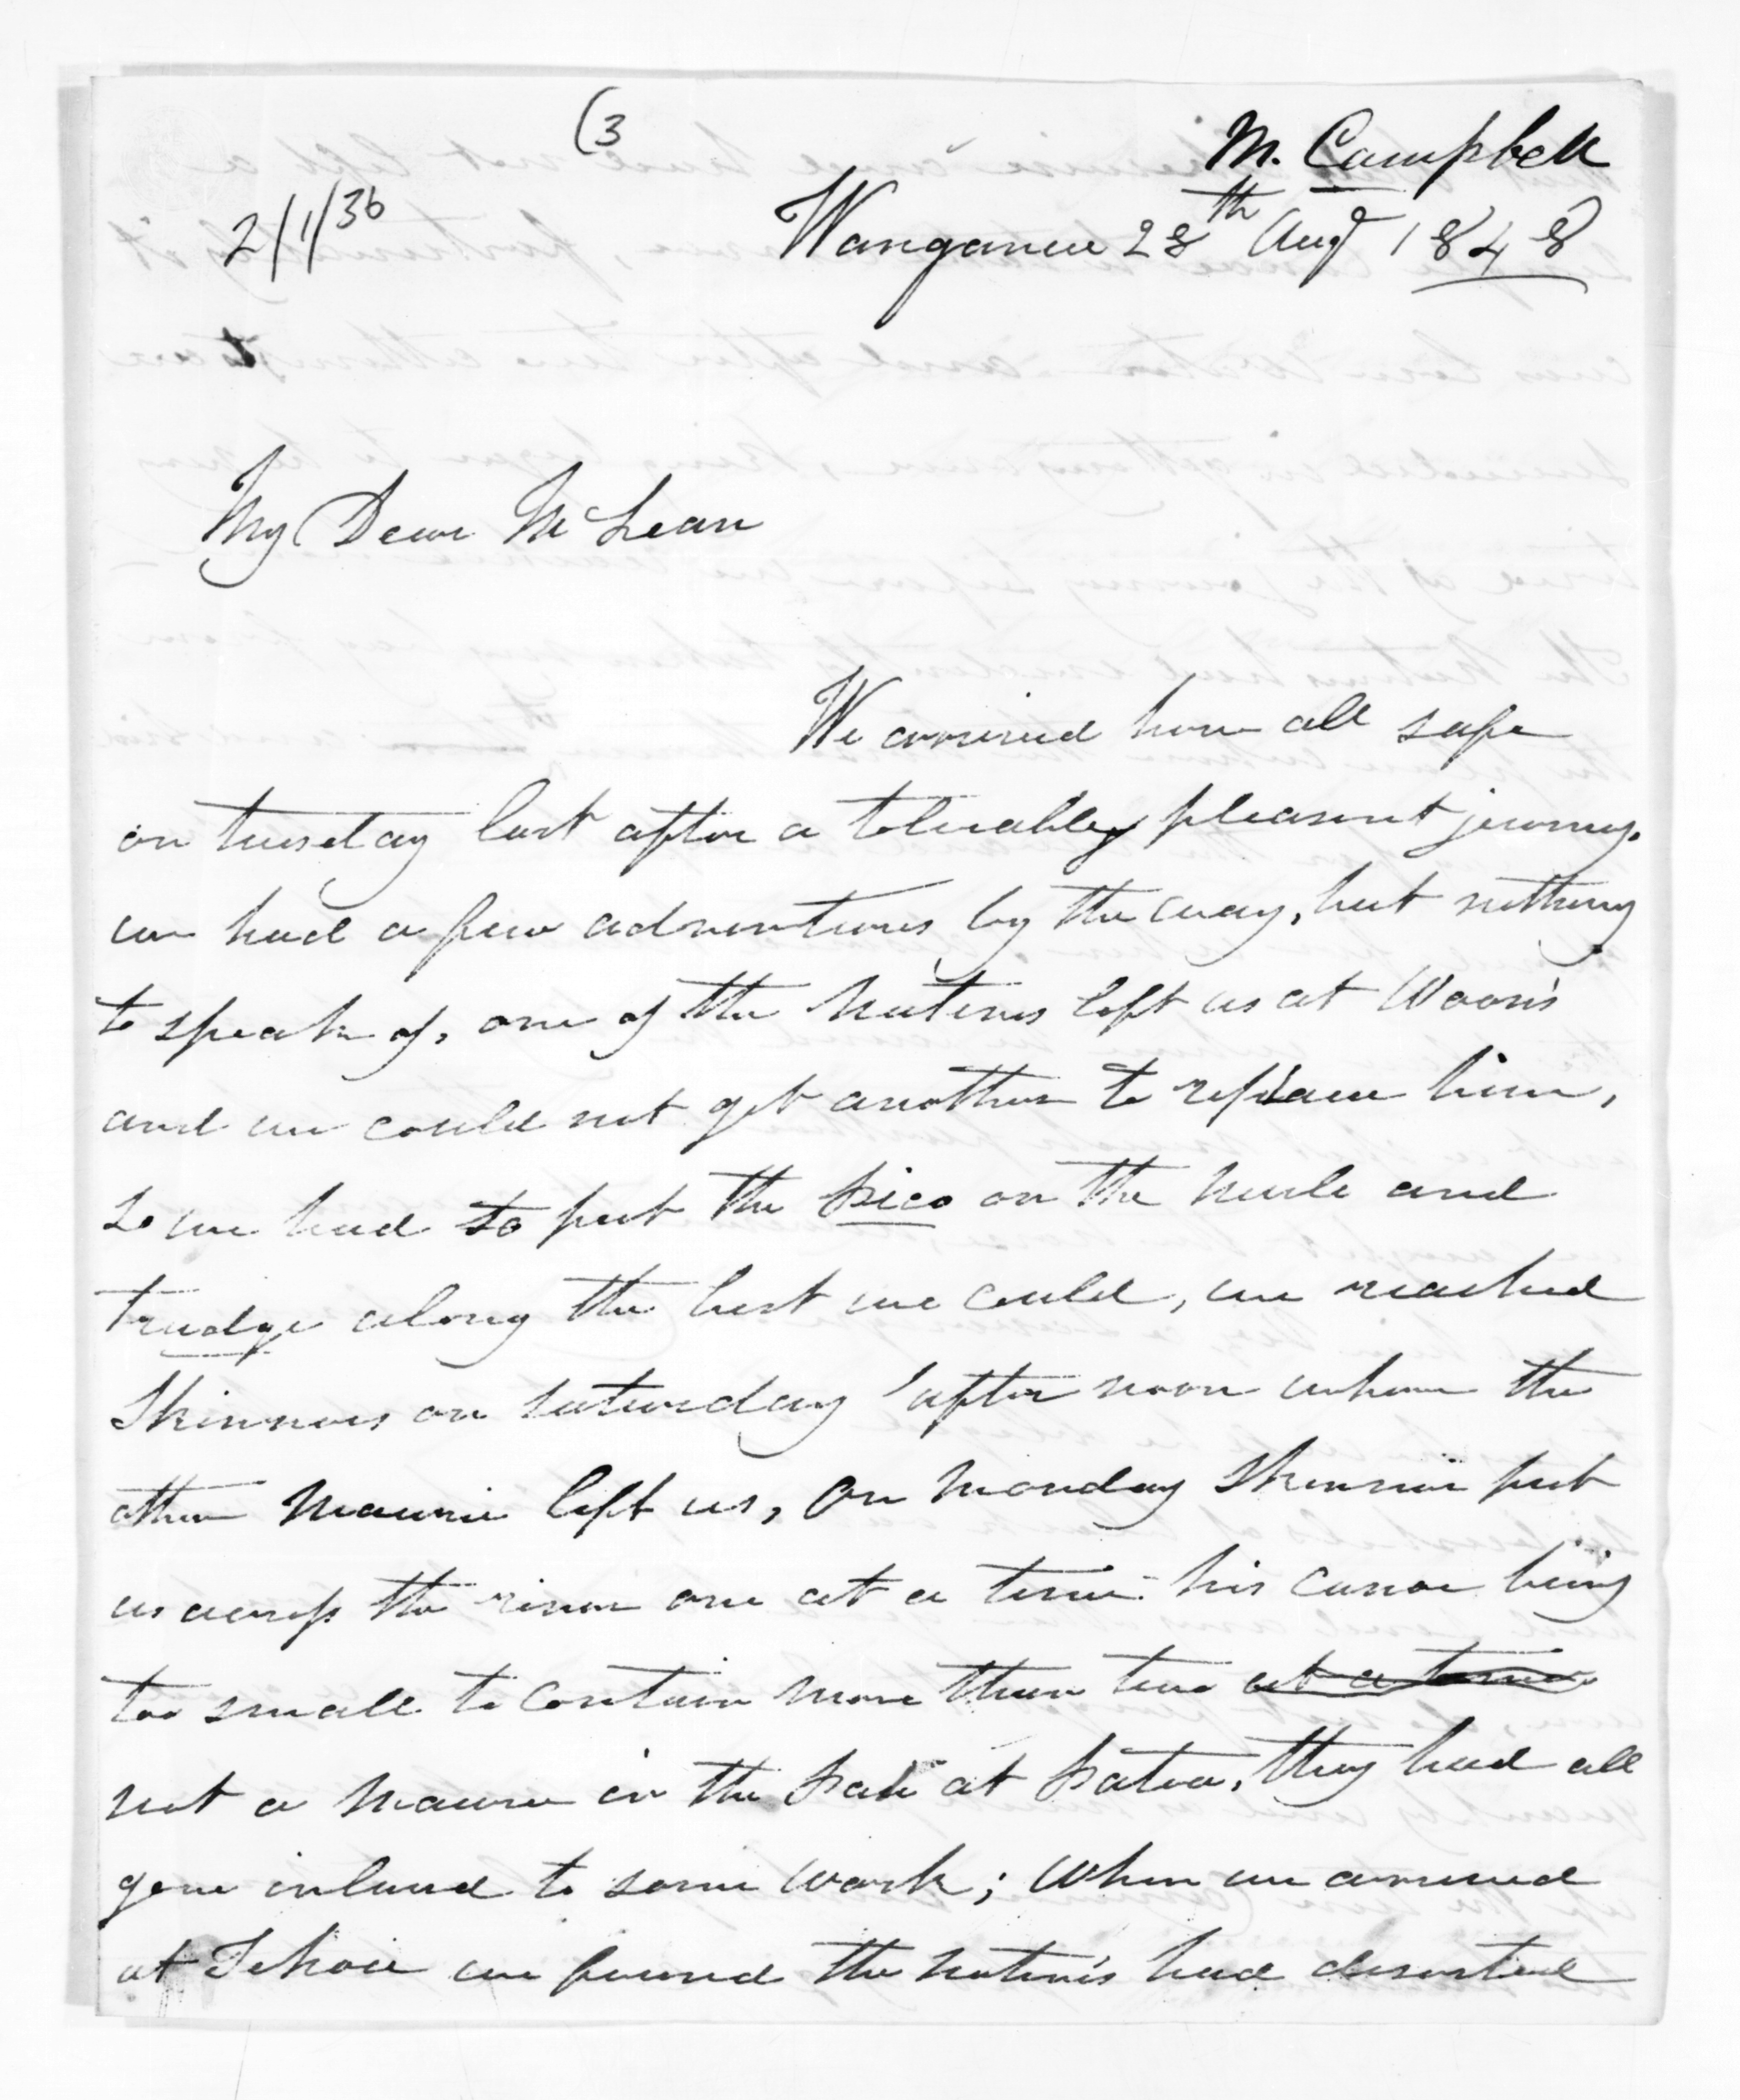 (3
M. Campbell
2/1/36
Wanganui 28th Augt 1848
My Dear McLean
We arrived here all safe
on tuesday last after a tolerably pleasent journey.
we had a few adventures by the way, but nothing
to speak of, one of the Natives left us at Woon's
and we could not get another to replace him,
so we had to put the pico on the Mule and
trudge along the best we could, we reached
Skinners on Saturday after noon where the
other Maurie left us, On Monday Skinner put
us across the river one at a time his canoe being
too small to contain more than two at a time
not a Maurie in the Pah at Patea, they had all
gone inland to some work; When we arrived
at we found the Natives had deserted